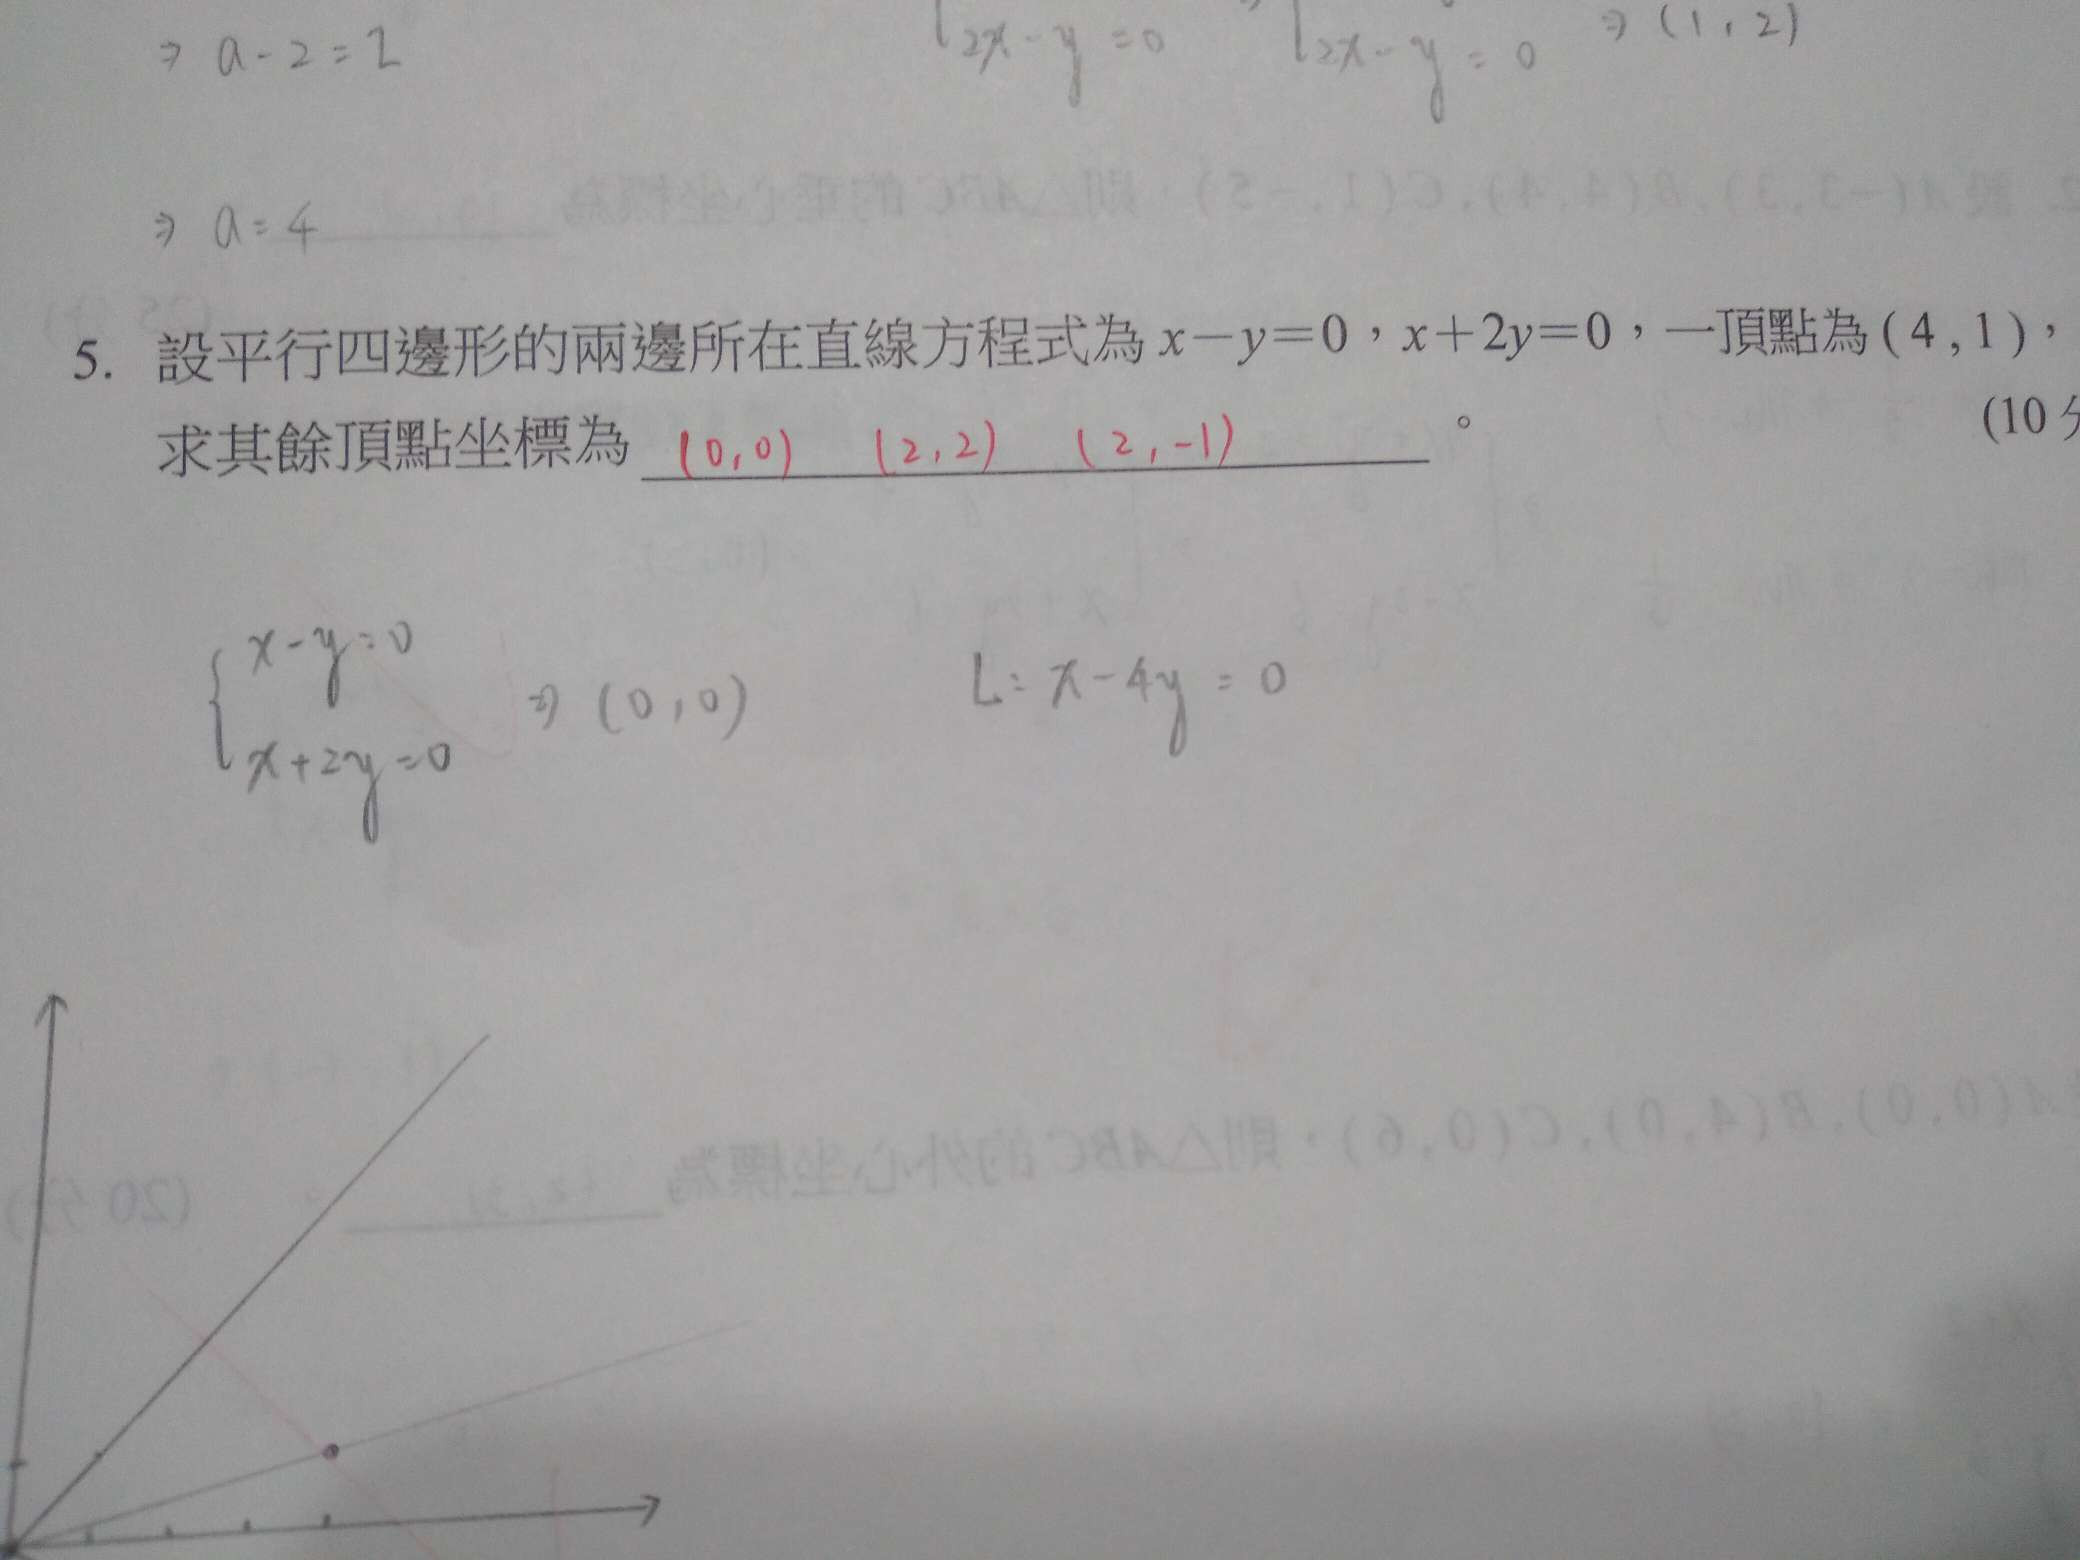 ⇒ a-2=2
2x-y=0 2x-y=0 ⇒(1,2)
⇒ a=4
5. 設平行四邊形的兩邊所在直線方程式為 x-y=0,x+2y=0,一頂點為(4,1),
求其餘頂點坐標為 (0,0) (2,2) (2,-1) 。 (10
x-y=0
⇒ (0,0) L: x-4y=0
x+2y=0